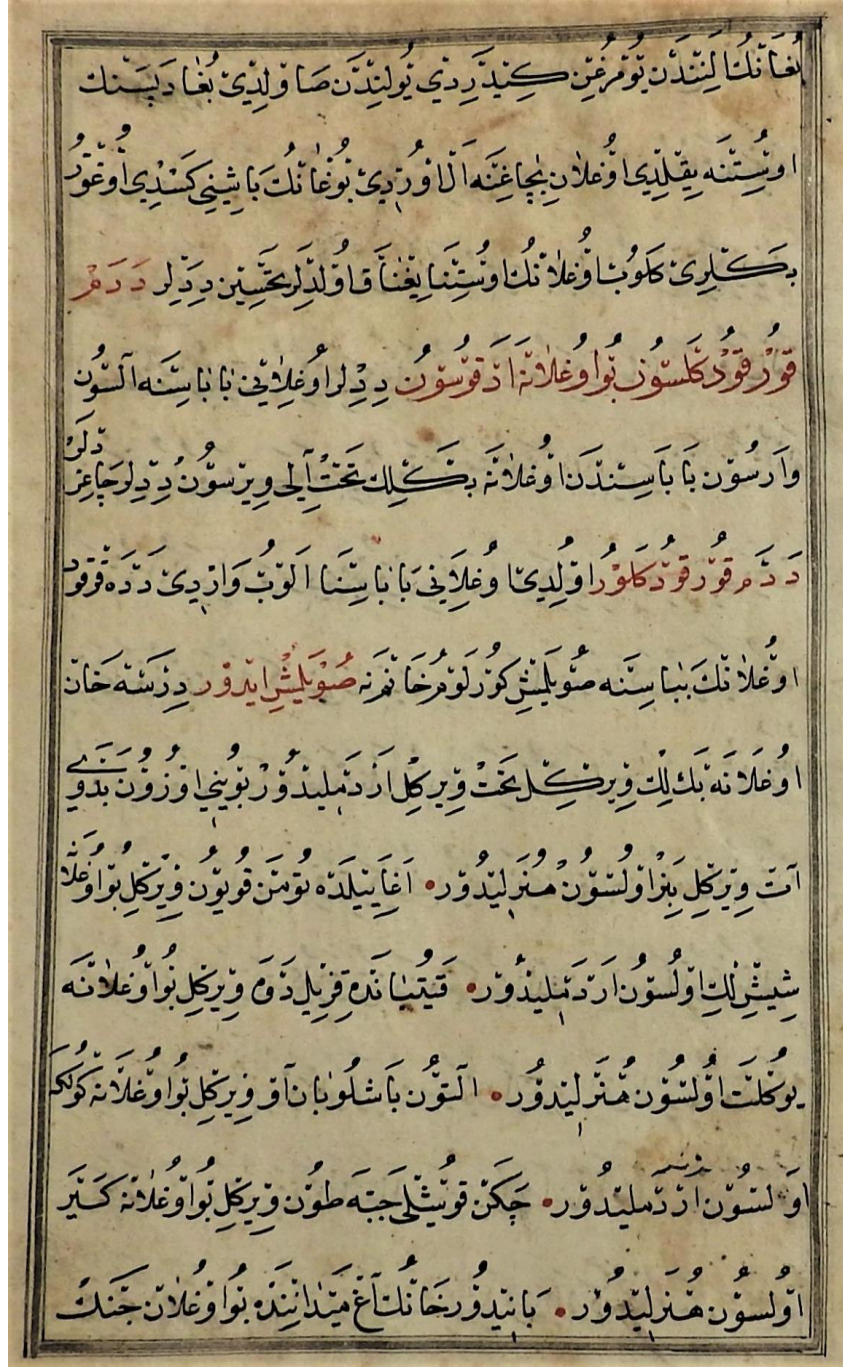 بُغَانُكْ اَلِنْدَنْ يُومْرُغِنْ كِيدَرْدِي يُولِنْدَنْ صَاوُلْدِيْ بُغَا دَپَسْنِكْ
اوُسْتِنَه يِقِلْدِي اوُغْلَانْ بِچَاغِنَه اَلْ اوُرْدِيْ بُوغَانُكْ بَاشِينِي كَسْدِي اُوغُوزْ
بَكْلَرِيْ كَلُوبْ اوُغْلَانُكْ اوُسْتِنَا يِغْنَاقْ اوُلْدِلَرْ تَحْسِينْ دِدِلَرْ دَدَمْ
قُورْقُودْ كَلْسُونْ بُو اوُغْلَانَه اَدْ قُوسُونْ دِدِلَرْ اوُغْلَانِيْ بَابَاسِنَه اَلْسُونْ
وَارْسُونْ بَابَاسِنْدَنْ اوُغْلَانَه بَكْلِكْ تَخْتْ اَلِي وِيرْسُونْ دِدِلَرْ چَاغِرْدِلَرْ
دَدَمْ قُورْقُودْ كَلُورْ اوُلْدِيْ اوُغْلَانِي بَابَاسِنَا اَلُوبْ وَارْدِيْ دَدَه قُورْقُودْ
اوُغْلَانُكْ بَبَاسِنَه صُويْلَمِشْ كُورَلُومْ خَانُمْ نَه صُويْلَمِشْ ايدُورْ دِرْسَه خَانْ
اوُغْلَانَه بَكْ لِكْ وِيرْكِلْ تَخْتْ وِيرْكِلْ اَرْدَمْلِيدُورْ بُوينِي اوُزُونْ بَدَوِي
آتْ وِيرْكِلْ بِنَرْ اوُلْسُونْ هُنَرْلِيدُورْ • اَغَايِيلْدَه تُومَنْ قُويُونْ وِيرْكِلْ بُو اوُغْلَانَه
شِيشْلِكْ اوُلْسُونْ اَرْدَمْلِيدُورْ • قَيْتَبَانْدَه قِزِلْ دَوَه وِيرْكِلْ بُو اوُغْلَانَه
يُوكْلَتْ اوُلْسُونْ هُنَرْلِيدُورْ • اَلْتُونْ بَاشْلُو بَانْ اَوْ وِيرْكِلْ بُو اوُغْلَانَه كُولْكَه
اوُلْسُونْ اَرْدَمْلِيدُورْ • چِكِنْ قُوشْلِي جَبَه طُونْ وِيرْكِلْ بُو اوُغْلَانَه كَيَرْ
اوُلْسُونْ هُنَرْلِيدُورْ • بَايِنْدُورْ خَانُكْ آغْ مَيْدَانِنْدَه بُو اوُغْلَانْ جَنْكْ